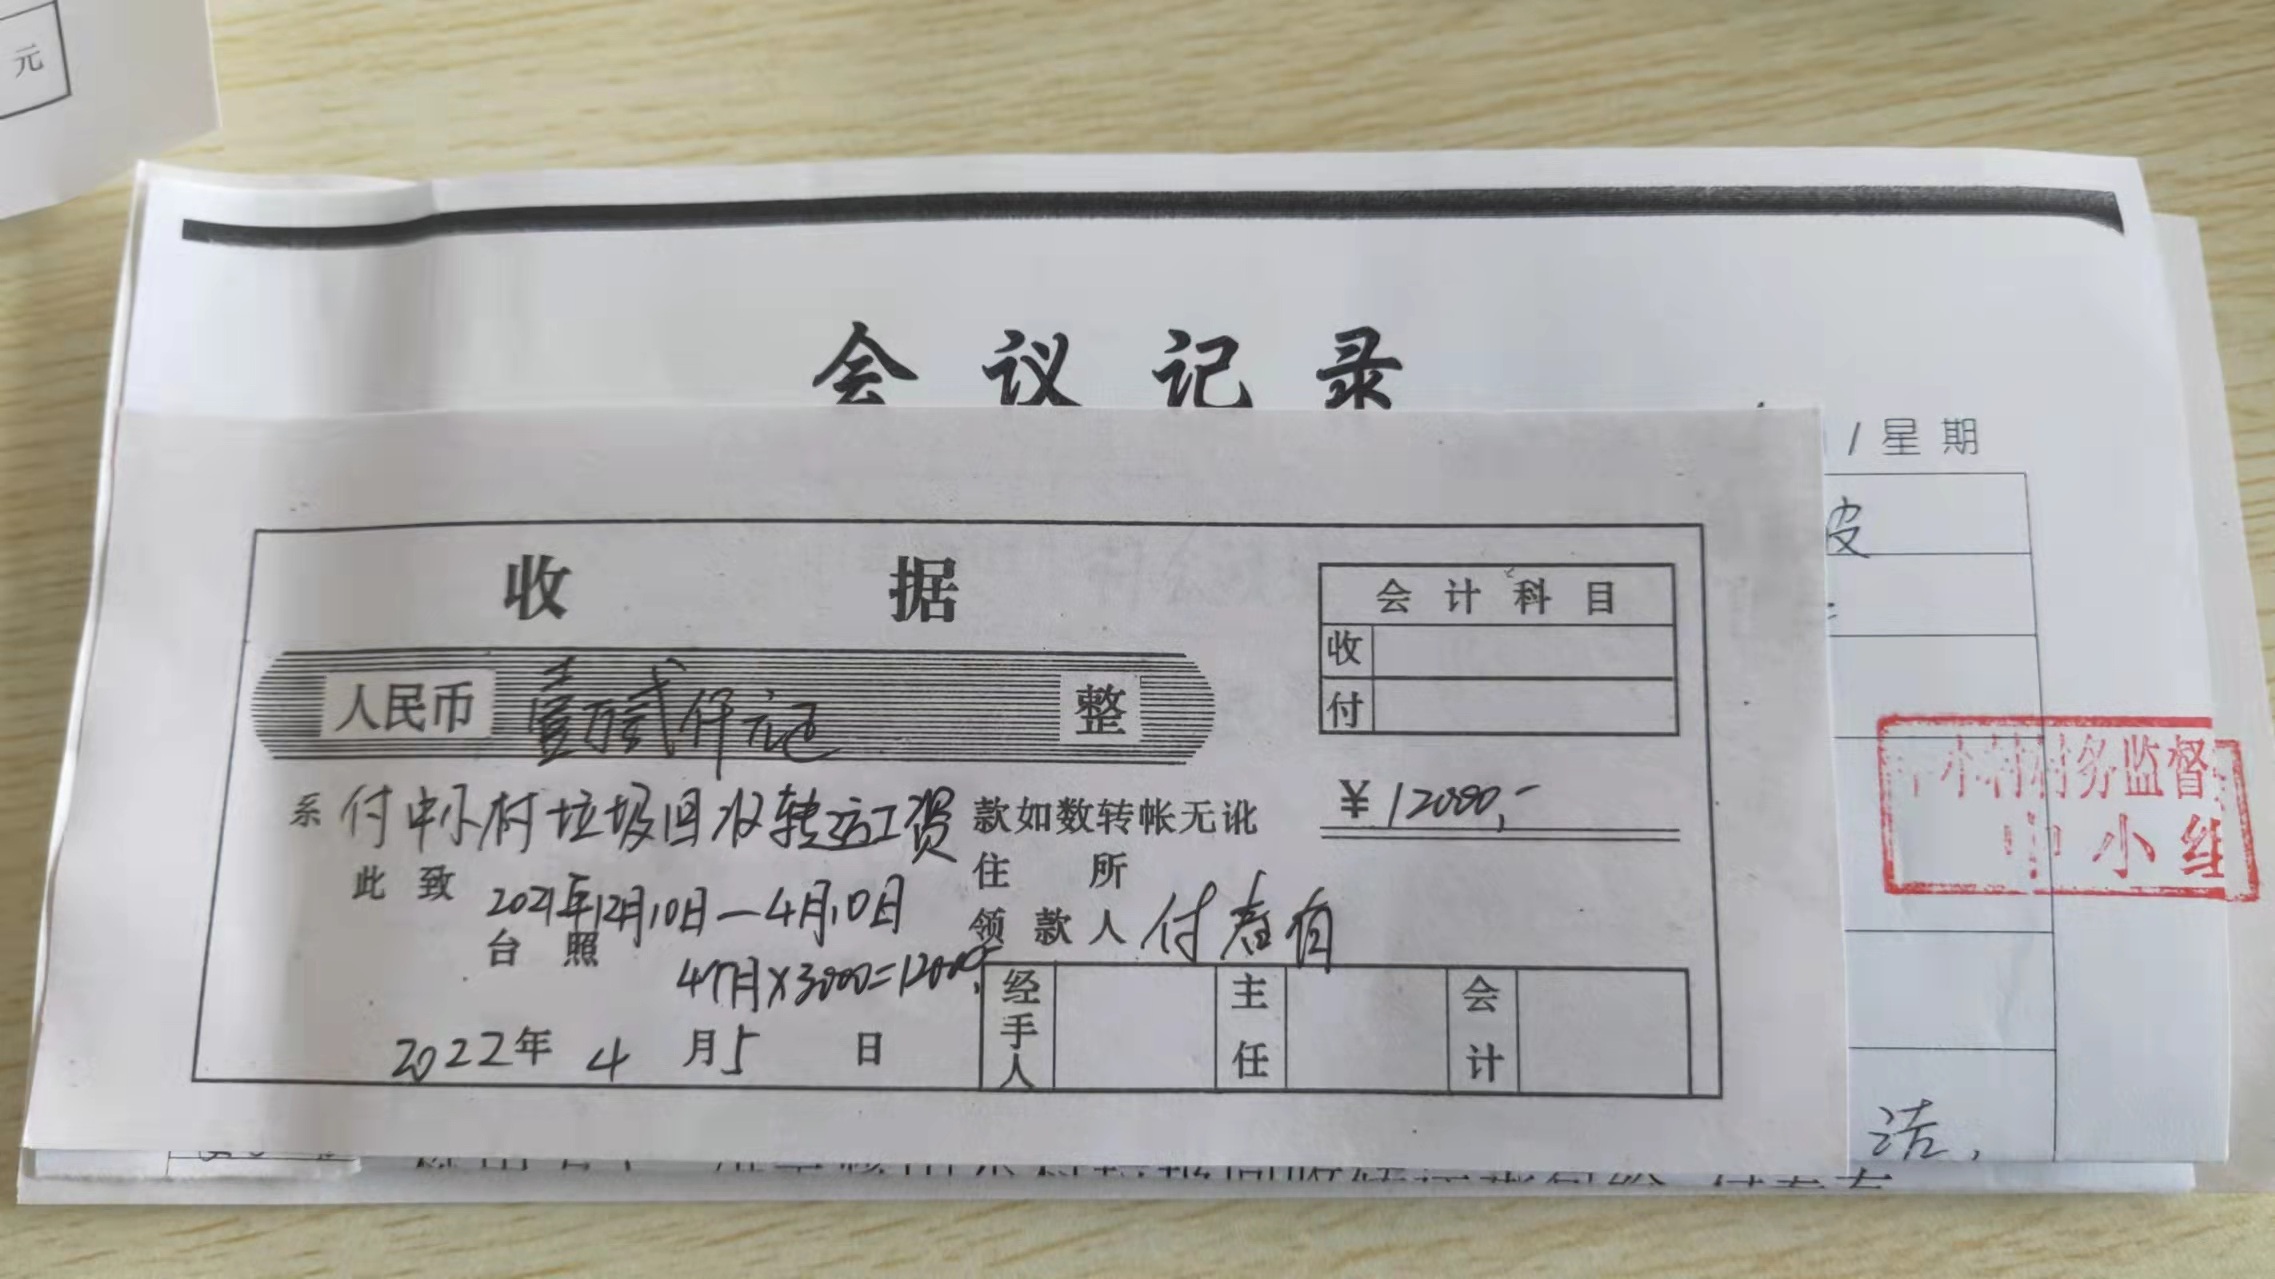 元
会议记录
1 星期
皮
收据
会计科目
收
付
人民币 壹万贰仟元 整
¥12000,-
系 付中小村垃圾回收转运工资 款如数转帐无讹
此致
2021年12月10日—4月10日
住所
台照
领款人 付春有
4个月×3000=12000
经手人 主任 会计
2022年4月5日
小村村务监督
中小组
洁,